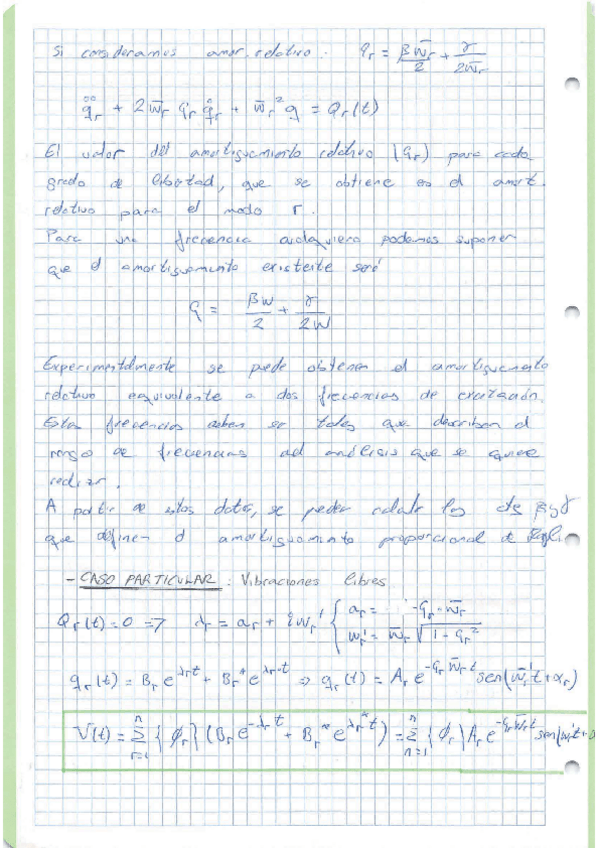 Si consideramos amor. relativo. ζr = βω̄r/2 + γ/2ω̄r
q̈r + 2ω̄r ζr q̇r + ω̄r² q = Qr(t)
El valor del amortiguamiento relativo (ζr) para cada
grado de libertad, que se obtiene es el amort.
relativo para el modo r.
Para una frecuencia cualquiera podemos suponer
que el amortiguamento existente será
ζ = βω/2 + γ/2ω
Experimentalmente se puede obtener el amortiguamento
relativo equivalente a dos frecuencias de excitación.
Estas frecuencias deben ser tales que describen el
rango de frecuencias del análisis que se quiere
realizar.
A partir de estos datos, se pueden calcular las cte β y γ
que definen el amortiguamento proporcional de
- CASO PARTICULAR: Vibraciones libres
Qr(t)=0 => λr = ar + iωr' { ar = -ζr·ω̄r
ωr' = ω̄r √(1-ζr²)
qr(t) = Br e^λrt + Br* e^λr*t => qr(t) = Ar e^-ζrω̄rt sen(ω̄r't+αr)
V(t) = Σ(r=1, n) {ϕr} (Br e^-λrt + Br* e^λr*t) = Σ(n=1, n) {ϕr} Ar e^-ζrω̄rt sen(ωr't+α